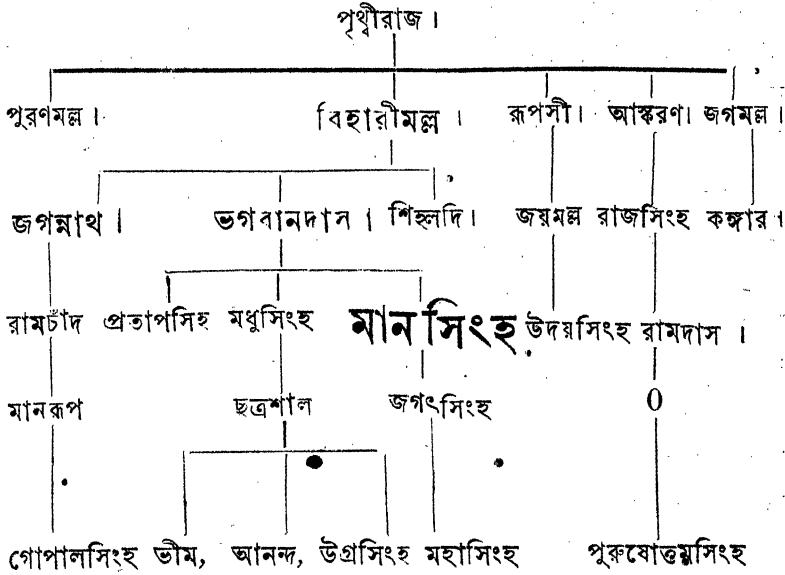 পৃথ্বীরাজ ।
পুরণমল্ল । বিহারীমল্ল । রূপসী। আস্করণ। জগমল্ল ।
জগন্নাথ । ভগবানদাস । শিহ্লদি। জয়মল্ল রাজসিংহ কঙ্গার ।
রামচাঁদ প্রতাপসিংহ মধুসিংহ মানসিংহ উদয়সিংহ রামদাস ।
মানরূপ ছত্রশাল জগৎসিংহ 0
গোপালসিংহ ভীম, আনন্দ, উগ্রসিংহ মহাসিংহ পুরুষোত্তমসিংহ